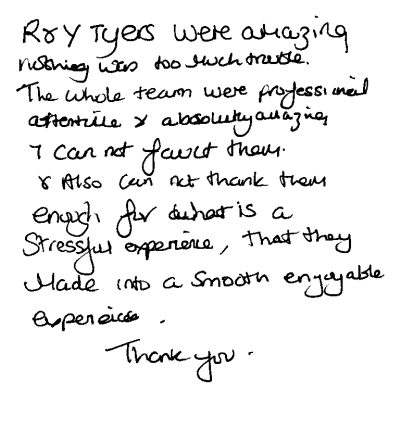 R & Y Tyers were amazing
nothing was too much trouble.
The whole team were professional
attentive & absolutely amazing
I can not fault them.
& Also can not thank them
enough for what is a
stressful experience, that they
made into a smooth enjoyable
experience.
Thank you.